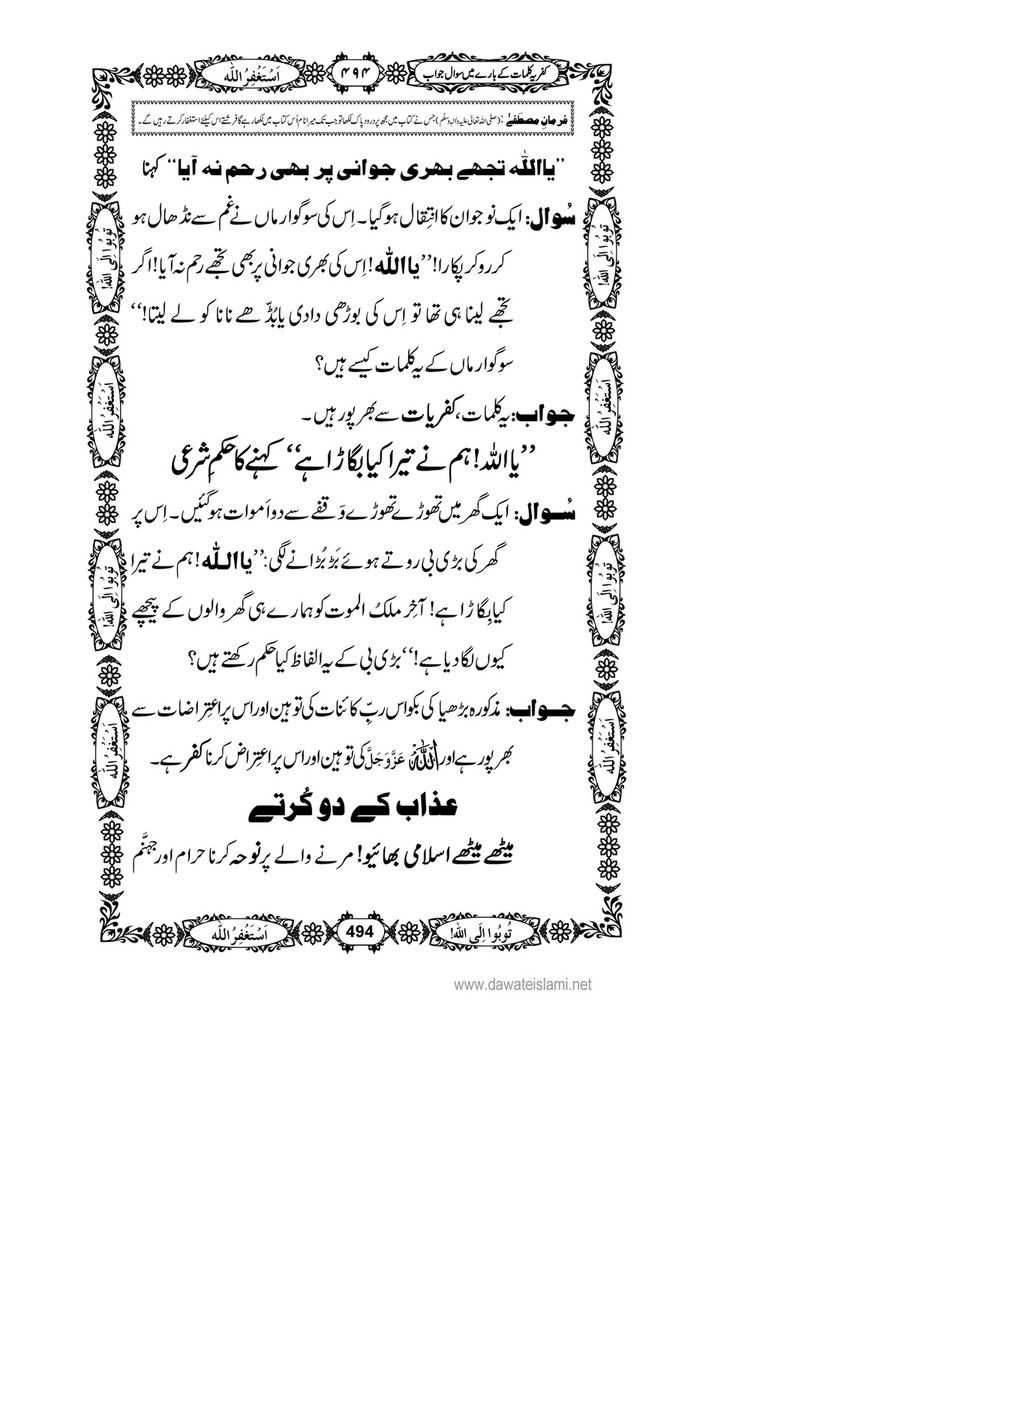 کفریہ کلمات کے بارے میں سوال جواب
۴۹۴
اَسْتَغْفِرُ اللہ
فرمانِ مصطفےٰ: (صلی اللہ تعالیٰ علیہ والہ وسلّم) جس نے کتاب میں مجھ پر درود پاک لکھا تو جب تک میرا نام اُس کتاب میں لکھا رہے گا فرشتے اس کیلئے استغفار کرتے رہیں گے۔
”یااللہ تجھے بھری جوانی پر بھی رحم نہ آیا“ کہنا
سُوال: ایک نوجوان کا انتِقال ہو گیا۔ اِس کی سوگوار ماں نے غم سے نڈھال ہو
کر رو کر پکارا! ”یااللہ! اِس کی بھری جوانی پر بھی تجھے رحم نہ آیا! اگر
تجھے لینا ہی تھا تو اِس کی بوڑھی دادی یا بُڈّھے نانا کو لے لیتا!“
سوگوار ماں کے یہ کلمات کیسے ہیں؟
جواب: یہ کلمات، کفریات سے بھر پور ہیں۔
”یااللہ! ہم نے تیرا کیا بگاڑا ہے“ کہنے کا حکمِ شرعی
سُوال: ایک گھر میں تھوڑے تھوڑے وَقفے سے دو اَموات ہو گئیں۔ اِس پر
گھر کی بڑی بی روتے ہوئے بَڑبُڑانے لگی: ”یااللہ! ہم نے تیرا
کیا بِگاڑا ہے! آخِر ملکُ الموت کو ہمارے ہی گھر والوں کے پیچھے
کیوں لگا دیا ہے!“ بڑی بی کے یہ الفاظ کیا حکم رکھتے ہیں؟
جواب: مذکورہ بڑھیا کی بکواس ربِّ کائنات کی توہین اور اس پر اعتِراضات سے
بھر پور ہے اور اللہ عَزَّوَجَلَّ کی توہین اور اس پر اعتِراض کرنا کفر ہے۔
عذاب کے دو کُرتے
میٹھے میٹھے اسلامی بھائیو! مرنے والے پر نوحہ کرنا حرام اور جہنَّم
تُوبُوا اِلَی اللہ!
اَسْتَغْفِرُ اللہ
تُوبُوا اِلَی اللہ!
اَسْتَغْفِرُ اللہ
تُوبُوا اِلَی اللہ!
اَسْتَغْفِرُ اللہ
تُوبُوا اِلَی اللہ!
اَسْتَغْفِرُ اللہ
تُوبُوا اِلَی اللہ!
494
اَسْتَغْفِرُ اللہ
www.dawateislami.net